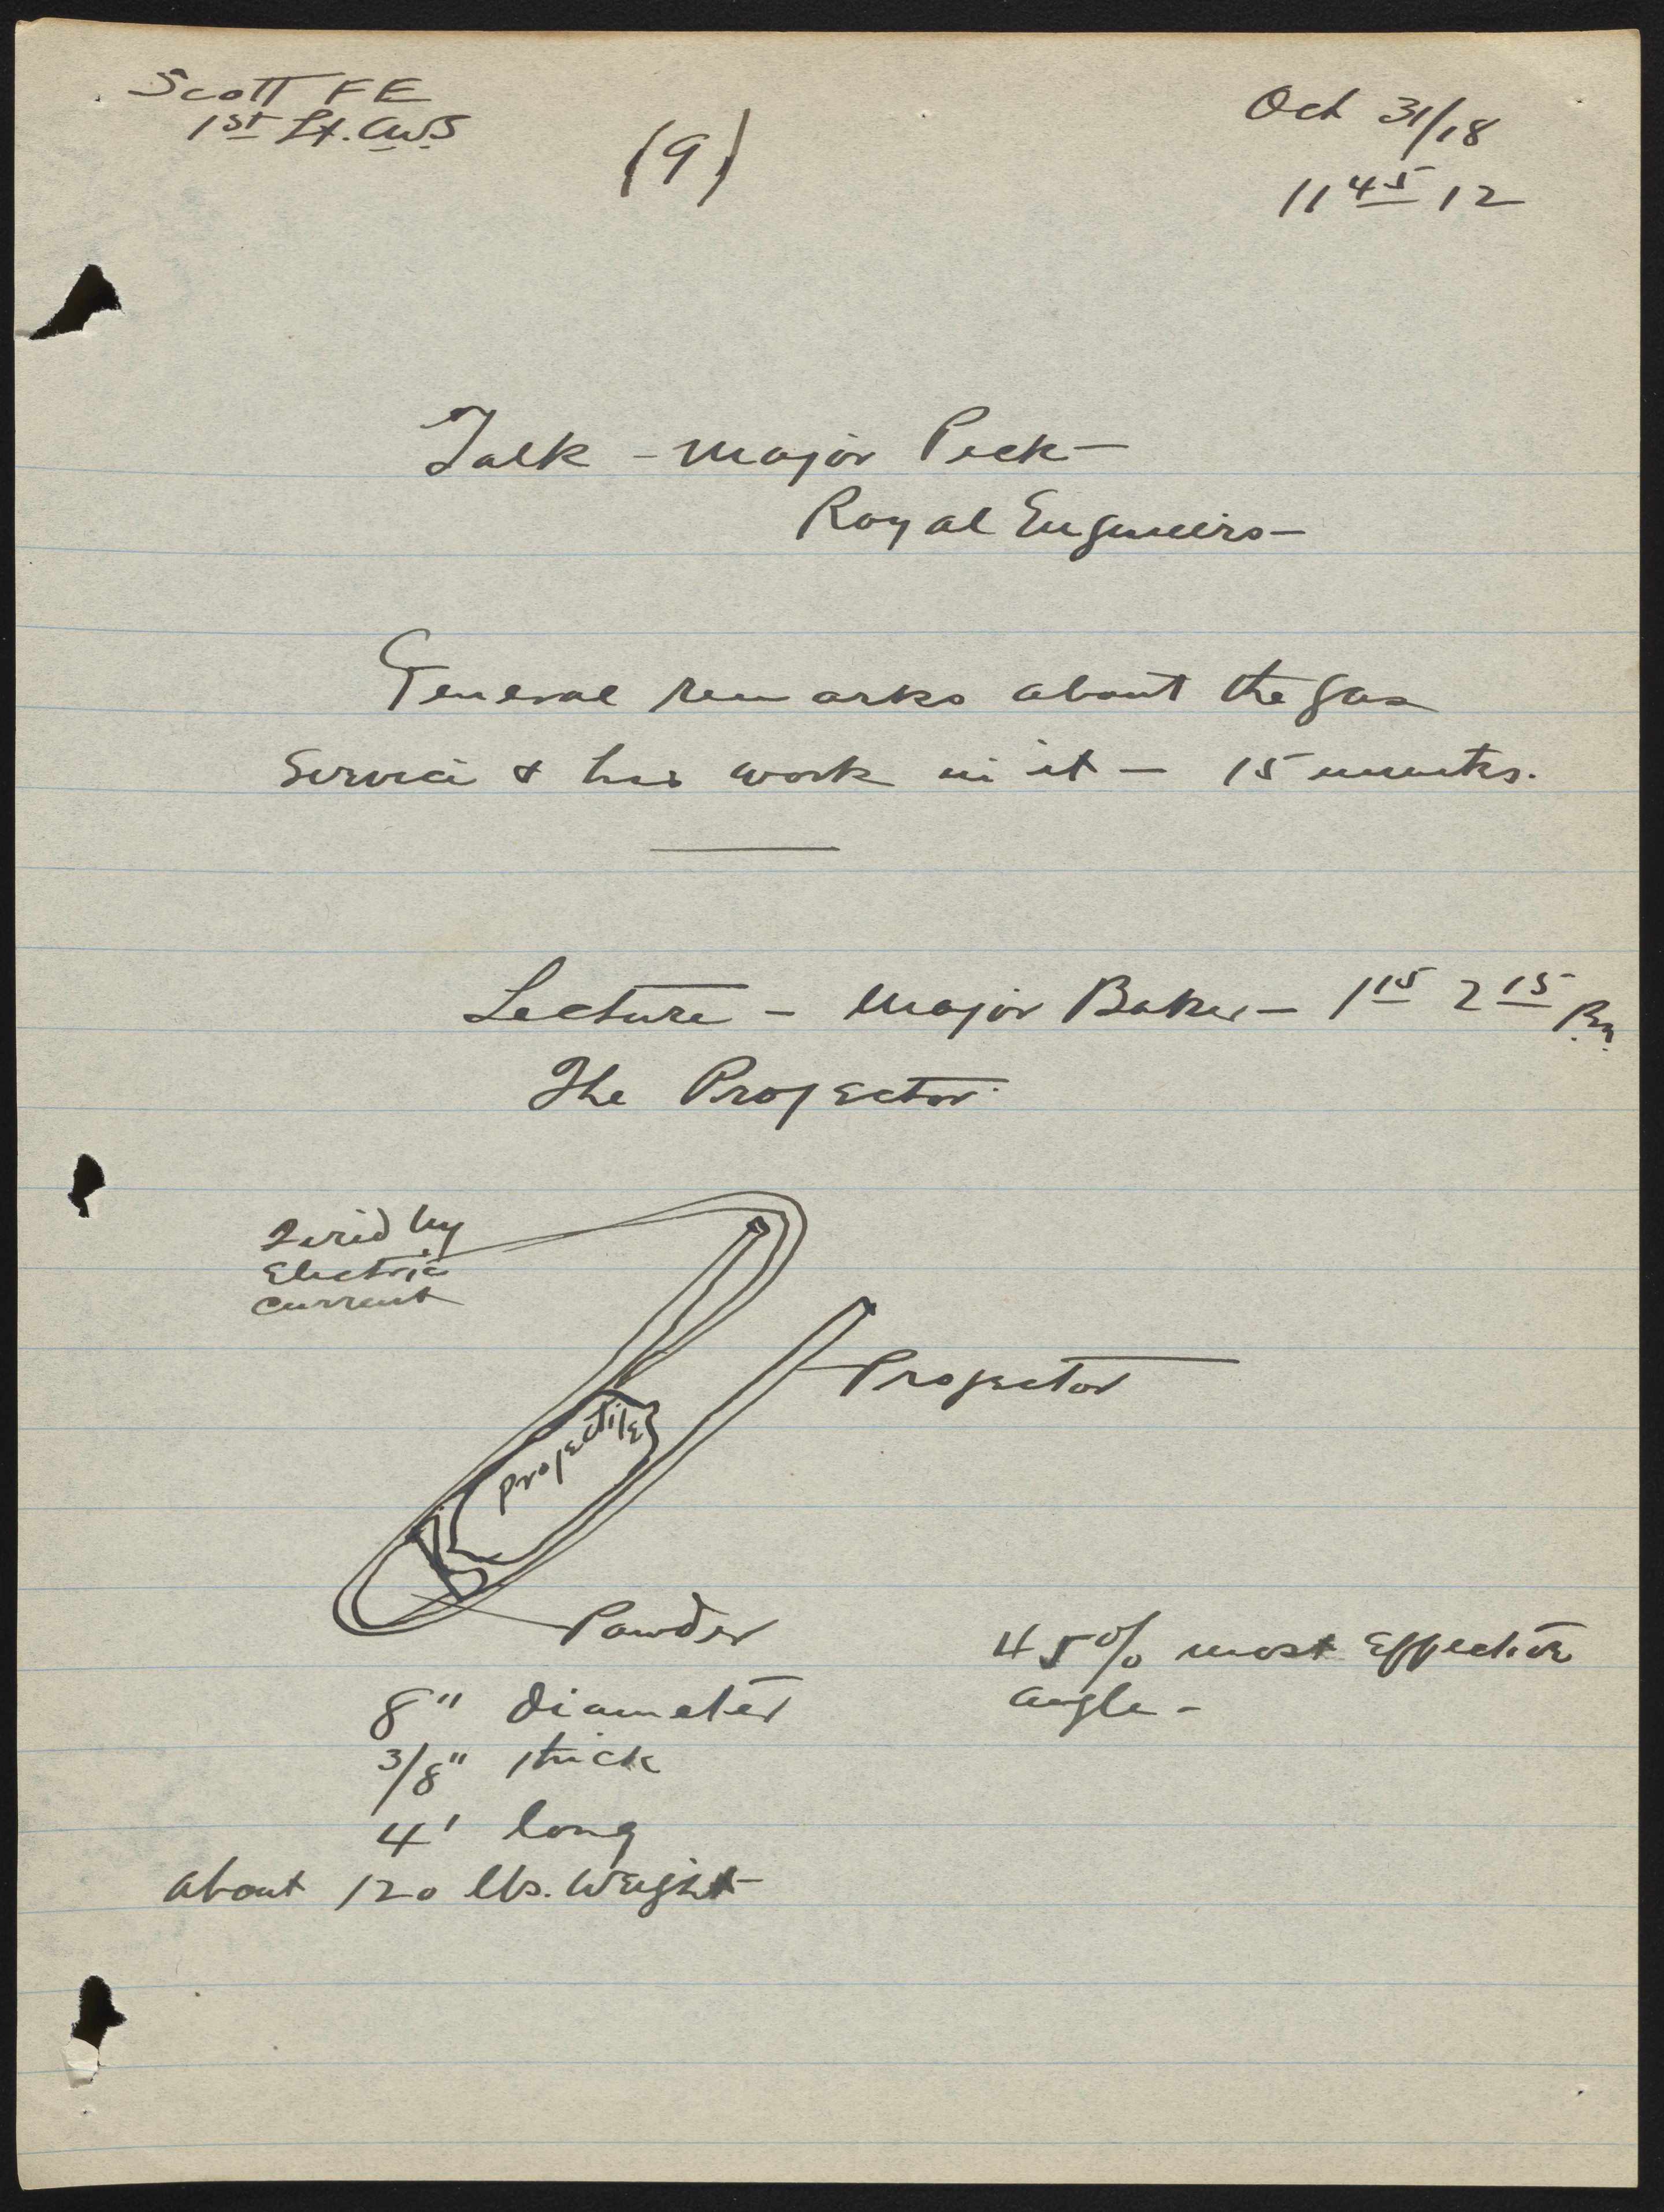 Scott FE
1st Lt. CWS
(9)
Oct 31/18
11 45 12
Talk - Major Peck -
Royal Engineers -
General remarks about the gas
Service & his work in it - 15 minutes.
Lecture - Major Baker - 1 15 2 15 P.M.
The Projector
Fired by
Electric
current
Projector
Projectile
Powder
45% most Effective
angle -
8" diameter
3/8" thick
4' long
about 120 lbs. weight -